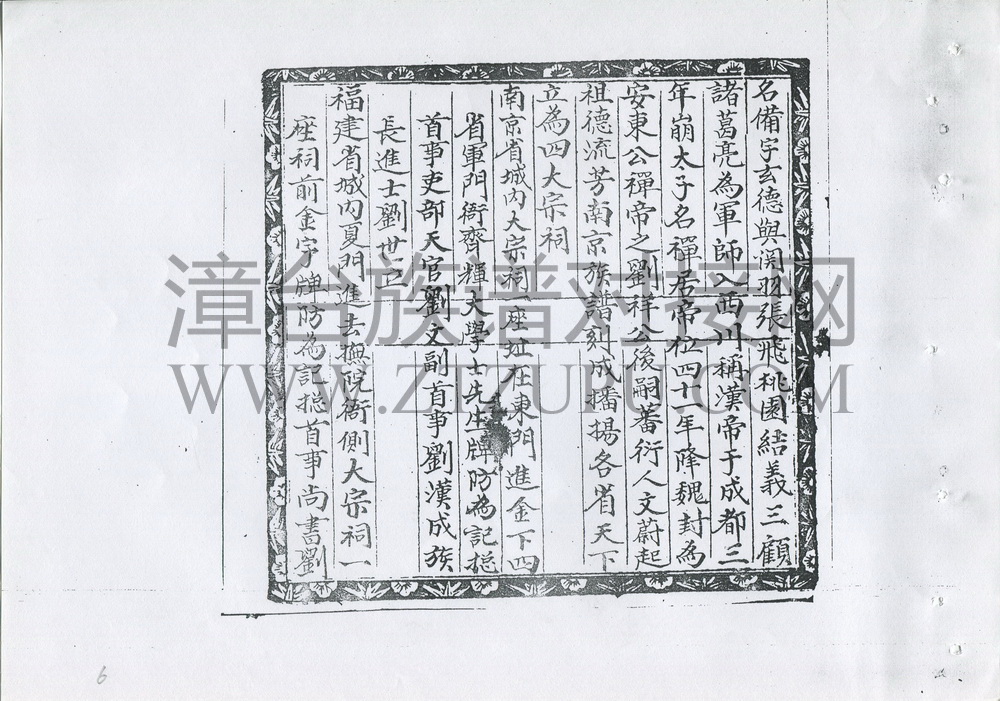 名備字玄德與関羽張飛桃園結義三顧
諸葛亮為軍師入西川稱漢帝于成都三
年崩太子名禪居帝位四十年降魏封為
安東公禪帝之劉祥公後嗣蕃衍人文蔚起
祖德流芳南京族譜刻成播揚各省天下
立為四大宗祠
南京省城內大宗祠一座址在東門進金下四
省軍門衙齊輝大學士先生牌防為記捴
首事吏部天官劉文副首事劉漢成族
長進士劉世
福建省城內夏門進去撫院衙側大宗祠一
座祠前金字牌防為記捴首事尚書劉
漳台族谱对接网
WWW.ZTZUPU.COM
6